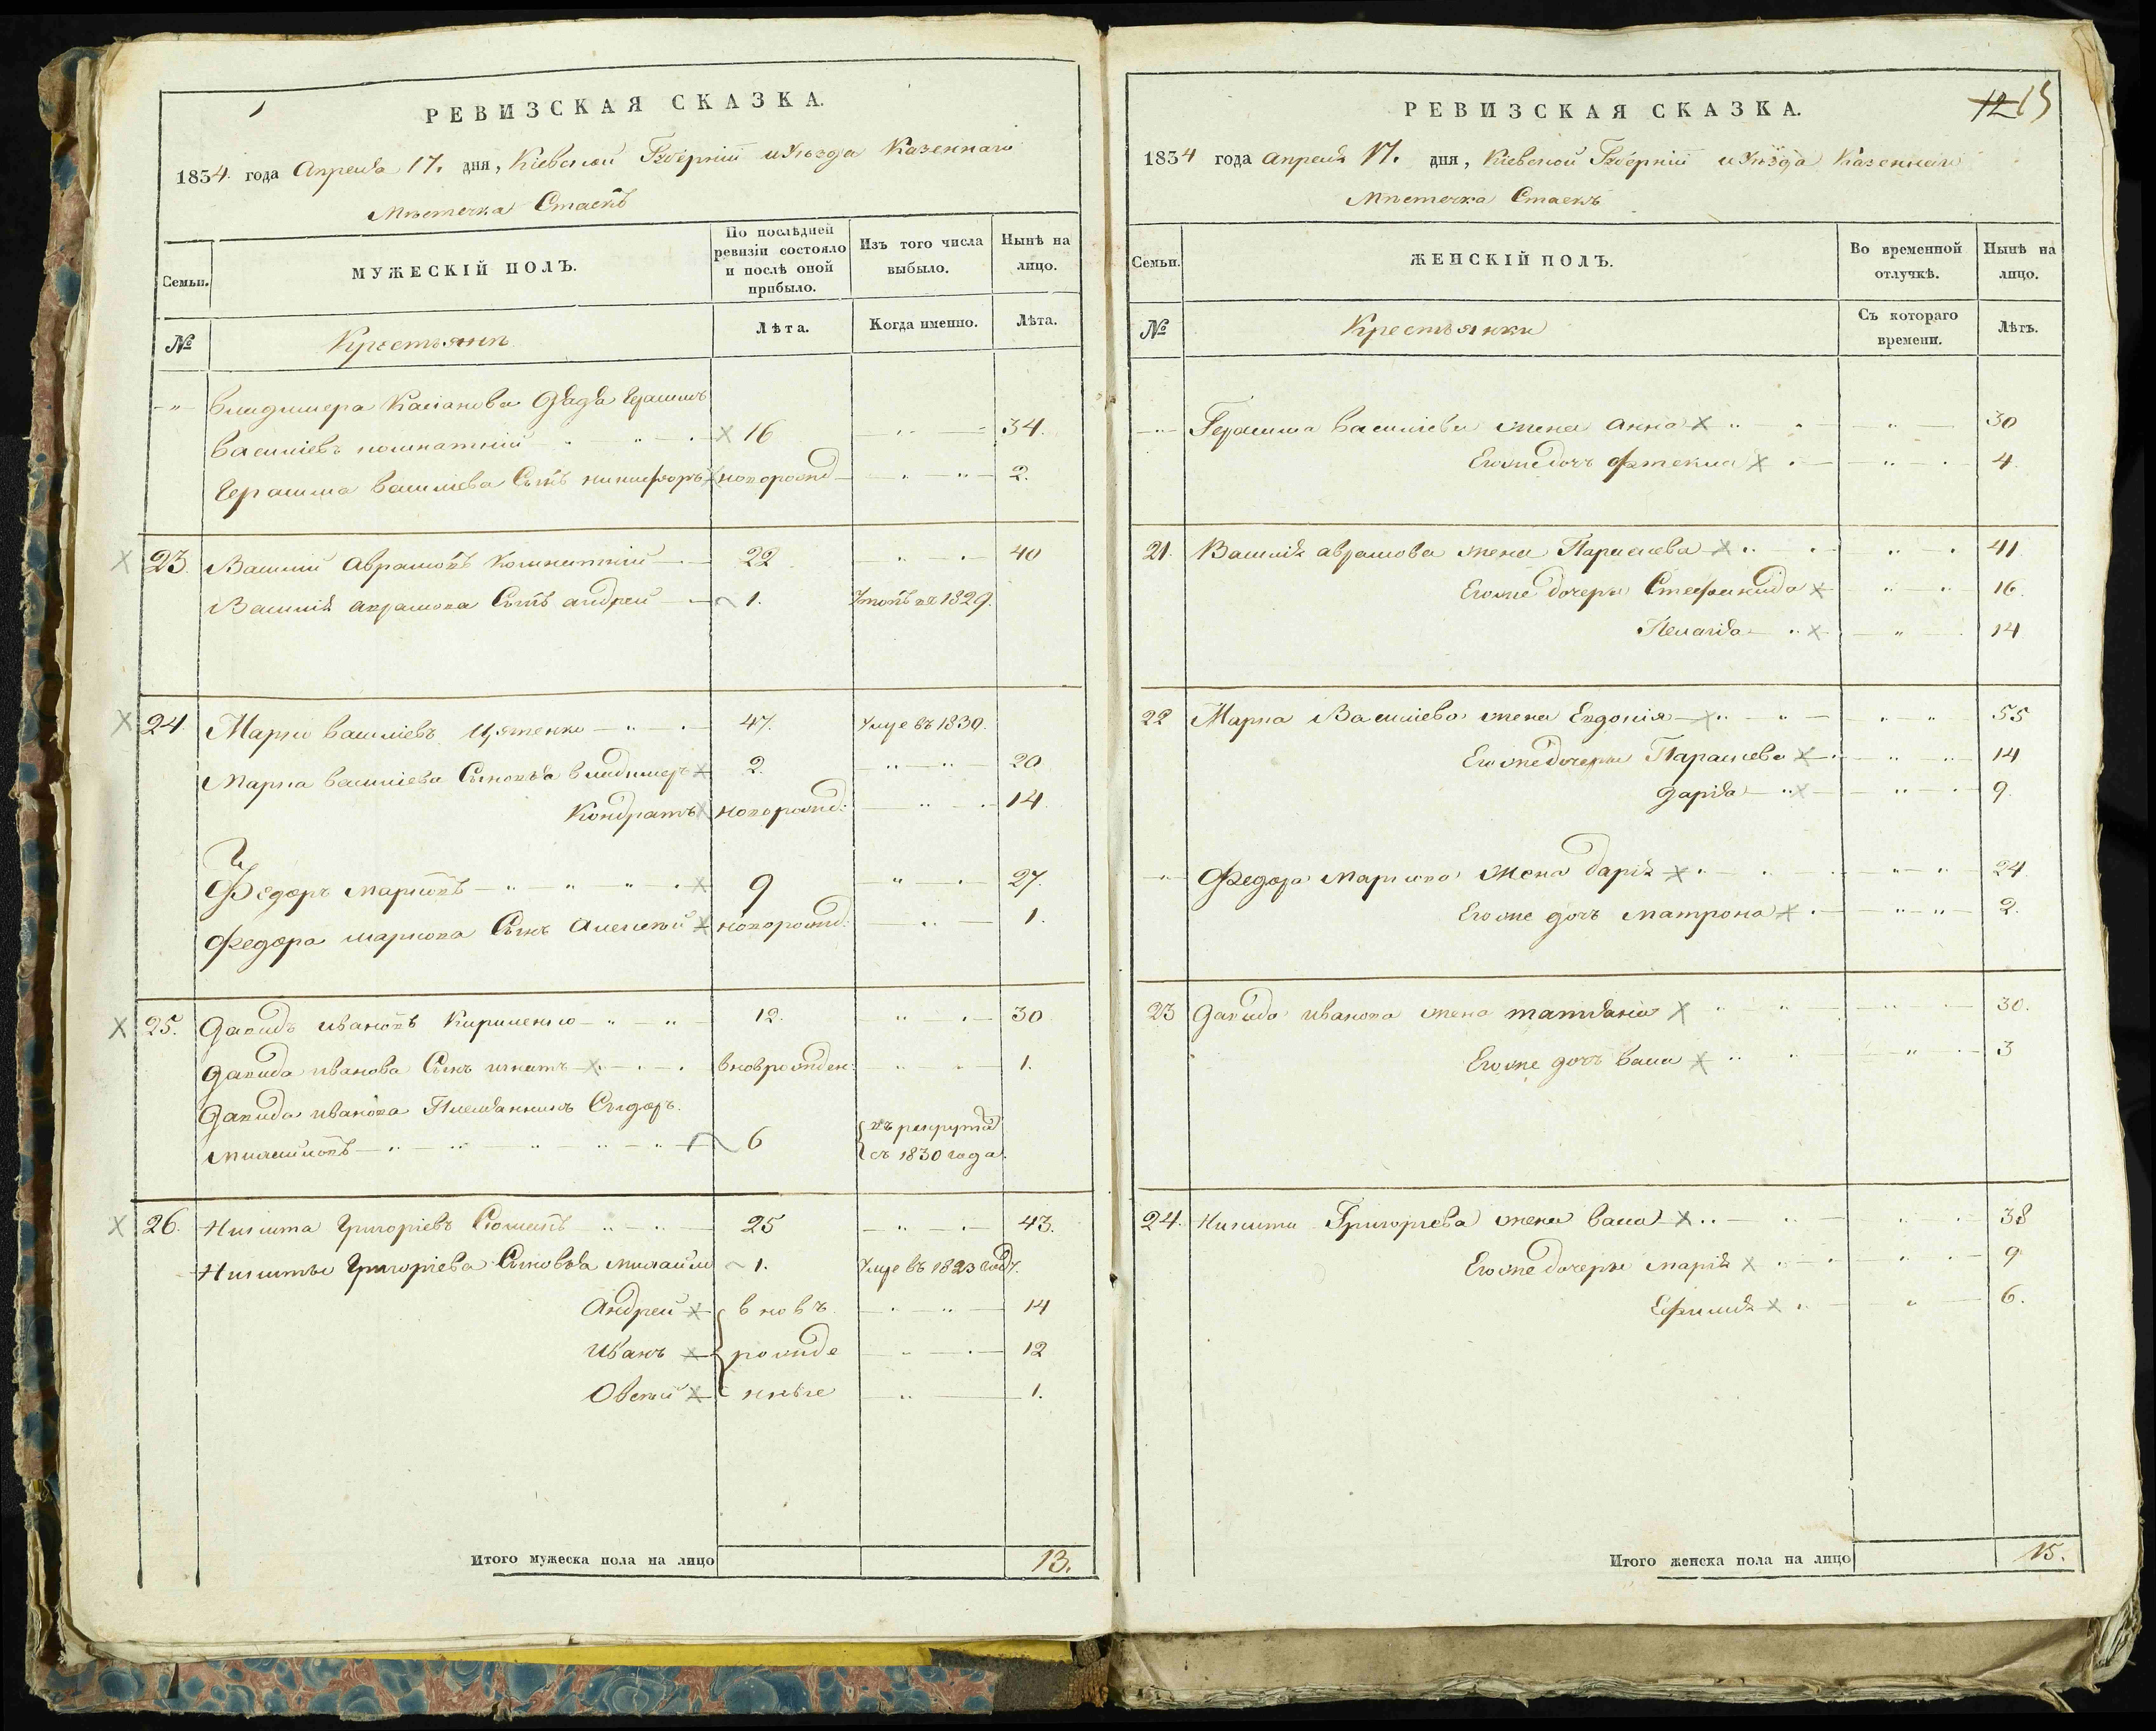 1
РЕВИЗСКАЯ СКАЗКА.
1834 года Апреля 17. дня, Кіевской Губерніи и Уѣзда Казеннаго
Мѣстечка Стаекъ
Семьи.
МУЖЕСКІЙ ПОЛЪ.
По послѣдней ревизіи состояло и послѣ оной прибыло.
Изъ того числа выбыло.
Нынѣ на лицо.
№
Крестьянъ
Лѣта.
Когда именно.
Лѣта.
Владимера Касіанова Дядя Герасимъ
Василіевъ 16 34.
Герасима Василіева Сынъ никифоръ новорожд 2.
23. Василій Аврамовъ 22 40
Василія аврамова Сынъ андрей 1. Умопъ въ 1829.
24. Марко Василіевъ 47. Умре въ 1830.
Марка Василіева Сыновья владимеръ 2. 20
Кондратъ новорожд: 14
Федоръ Марковъ 9 27.
Федора маркова Сынъ Алексѣй новорожд: 1.
25. Давидъ Ивановъ Кириленко 12. 30
Давида иванова Сынъ игнатъ вноврожден: 1.
Давида иванова Племянникъ Сидоръ
Михайловъ 6 въ рекрута съ 1830 года.
26. Никита Григоріевъ 25 43.
Никиты Григоріева Сыновья михайло 1. Умре въ 1823 году.
Андрей вновь 14
Иванъ рожде 12
Овсѣй нные 1.
Итого мужеска пола на лицо 13.
12 15
РЕВИЗСКАЯ СКАЗКА.
1834 года Апреля 17. дня, Кіевской Губерніи и Уѣзда Казеннаго
Мѣстечка Стаекъ
Семьи.
ЖЕНСКІЙ ПОЛЪ.
Во временной отлучкѣ.
Нынѣ на лицо.
№
Крестьянки
Съ котораго времени.
Лѣтъ.
Герасима Василіева жена Анна 30
Егоже дочь Фтекла 4.
21. Василія аврамова жена Параскева 41.
Егоже дочери Стефанида 16.
Пелагія 14
22 Марка Василіева жена Евдокія 55
Егоже дочери Параскева 14
Дарія 9.
Федора Маркова жена Дарія 24.
Егоже дочь Матрона 2.
23 Давида иванова жена маміанія 30.
Егоже дочь васа 3
24. Никиты Григоріева жена васа 38
Егоже дочери марія 9
Ефимія 6.
Итого женска пола на лицо 15.